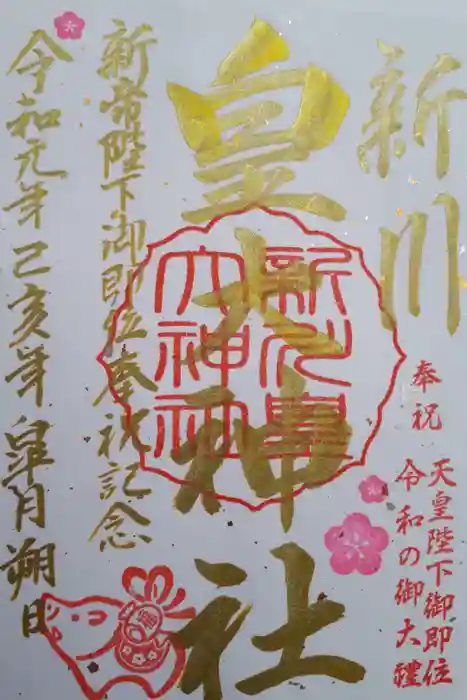 新川
皇大神社
奉祝
天皇陛下御即位
令和の御大禮
新川皇大神社
新帝陛下御即位奉祝記念
令和元年己亥年皐月朔日